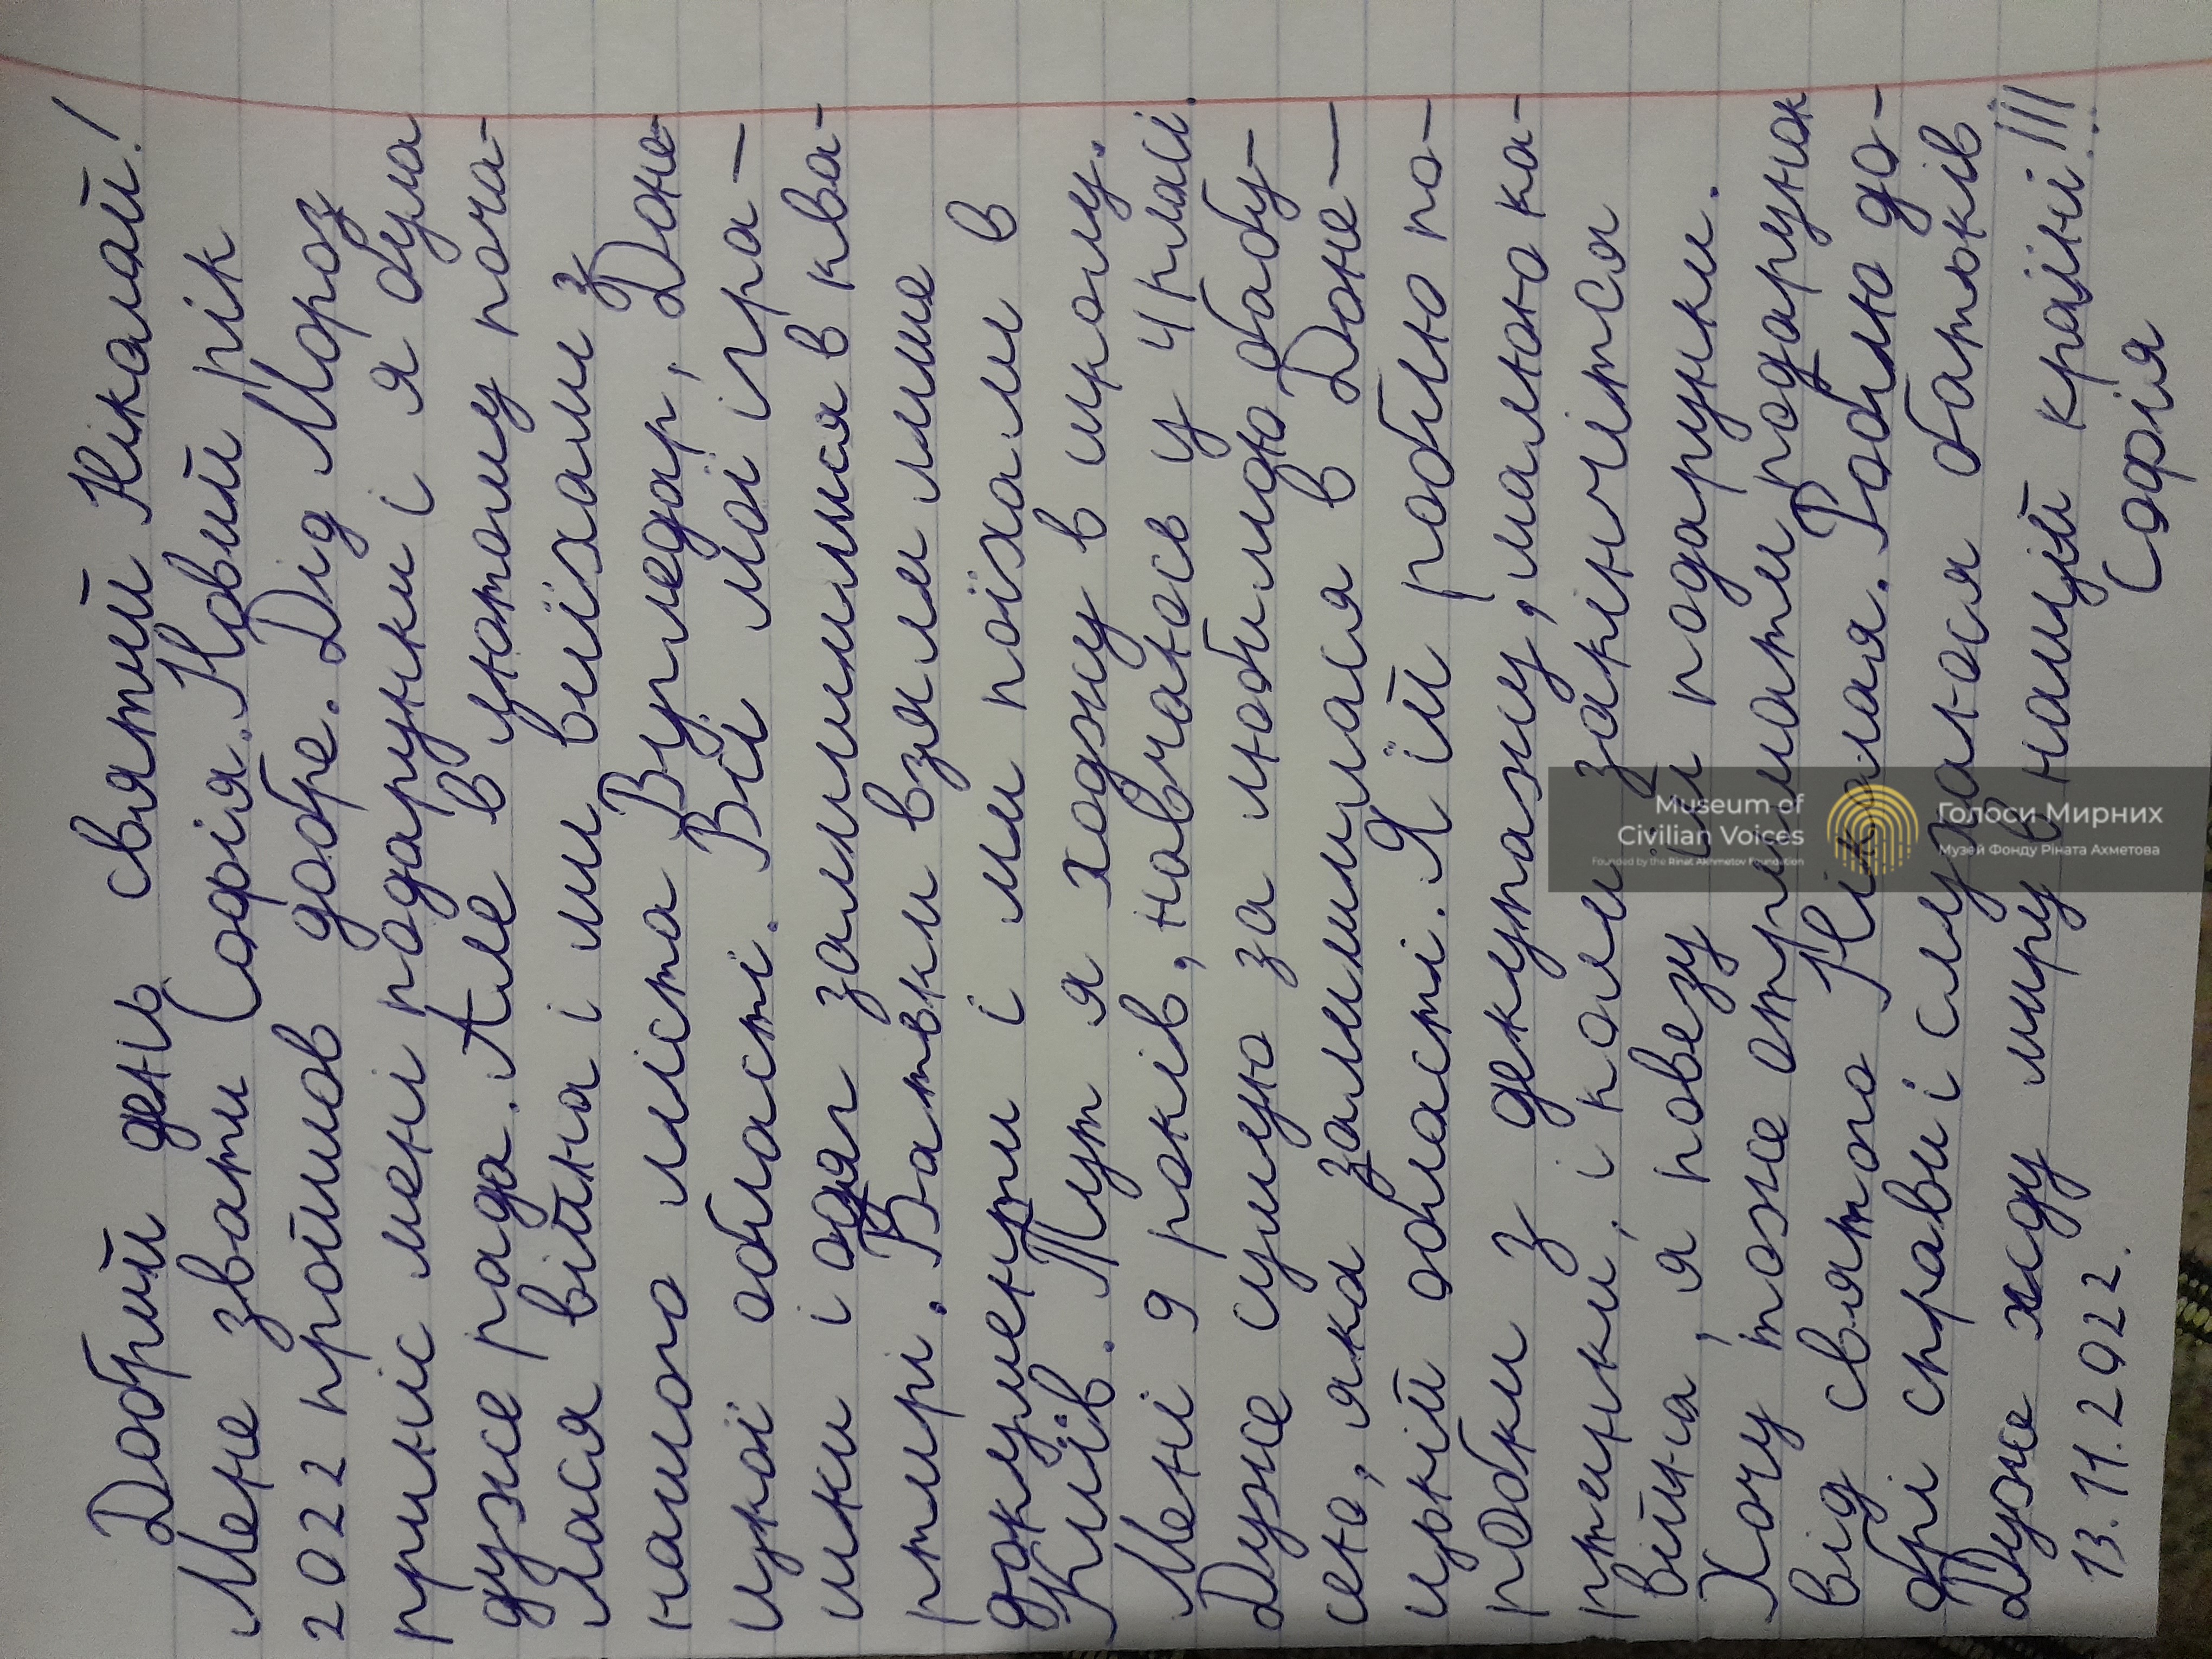 Добрий день святий Ніколай!
Мене звати Софія. Новий рік
2022 пройшов добре. Дід Мороз
приніс мені подарунки і я була
дуже рада. Але в лютому поча-
лася війна і ми виїхали з
нашого міста Вугледар, Доне-
цкої області. Всі мої ігра-
шки і одяг залишилися в ква-
ртирі. Батьки взяли лише
документи і ми поїхали в
Київ. Тут я ходжу в школу.
Мені 9 років, навчаюсь у 4 класі.
Дуже сумую за любимою бабу-
сею, яка залишилася в Доне-
цькій області. Я їй роблю ко-
робки з декупажу, малюю ка-
ртинки, і коли закінчится
війна, я повезу їй подарунки.
Хочу тоже отримати подарунок
від святого Ніколая. Роблю до-
брі справи і слухаюся батьків
Дуже жду миру в нашій країні!!!
13.11.2022. Софія
Museum of
Civilian Voices
Founded by the Rinat Akhmetov Foundation
Голоси Мирних
Музей Фонду Ріната Ахметова